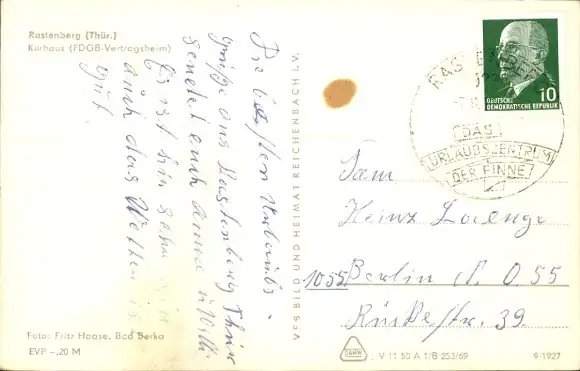 Rastenberg (Thür.)
Kurhaus (FDGB-Vertragsheim)
Die besten Urlaubs-
grüße aus Rastenberg Thür
sendet euch Anna u. Willi
Es ist hier sehr
auch das Wetter ist
gut.
Foto: Fritz Haase, Bad Berka
EVP -,20 M
VEB BILD UND HEIMAT REICHENBACH I.V.
DEUTSCHE
DEMOKRATISCHE REPUBLIK
10
DAS
URLAUBSZENTRUM
DER FINNE
Fam
Heinz Laenge
1055 Berlin 055
Rückestr. 39.
V 11 50 A 1/B 253/69
9/1927